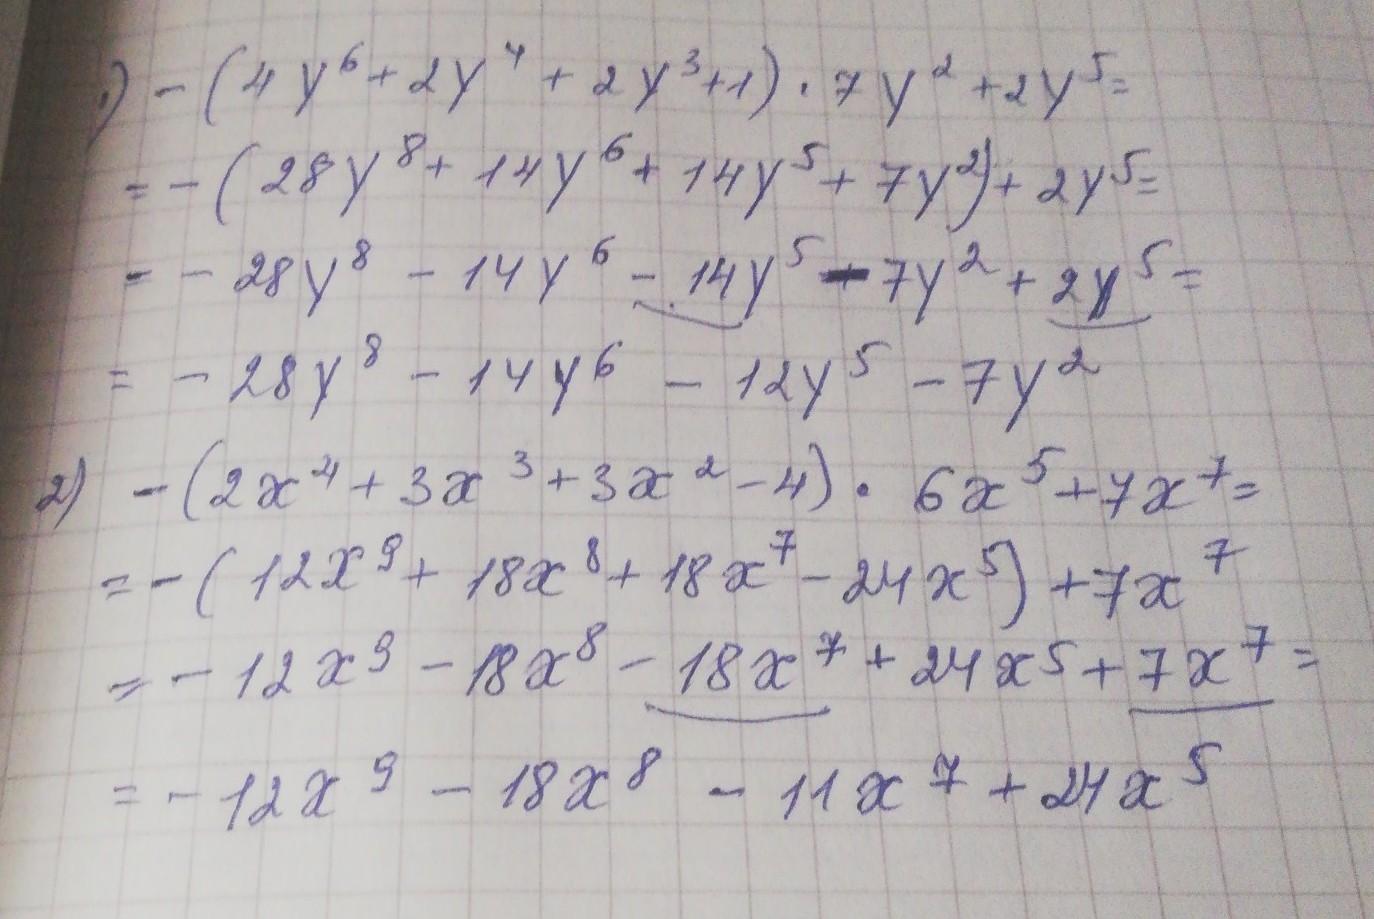 1) -(4y⁶+2y⁴+2y³+1)·7y²+2y⁵=
=-(28y⁸+14y⁶+14y⁵+7y²)+2y⁵=
=-28y⁸-14y⁶-14y⁵-7y²+2y⁵=
=-28y⁸-14y⁶-12y⁵-7y²
2) -(2x⁴+3x³+3x²-4)·6x⁵+7x⁷=
=-(12x⁹+18x⁸+18x⁷-24x⁵)+7x⁷
=-12x⁹-18x⁸-18x⁷+24x⁵+7x⁷=
=-12x⁹-18x⁸-11x⁷+24x⁵